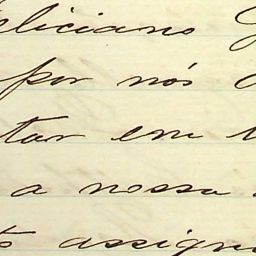 eliciano
por nós
tar em
a nossa
assign